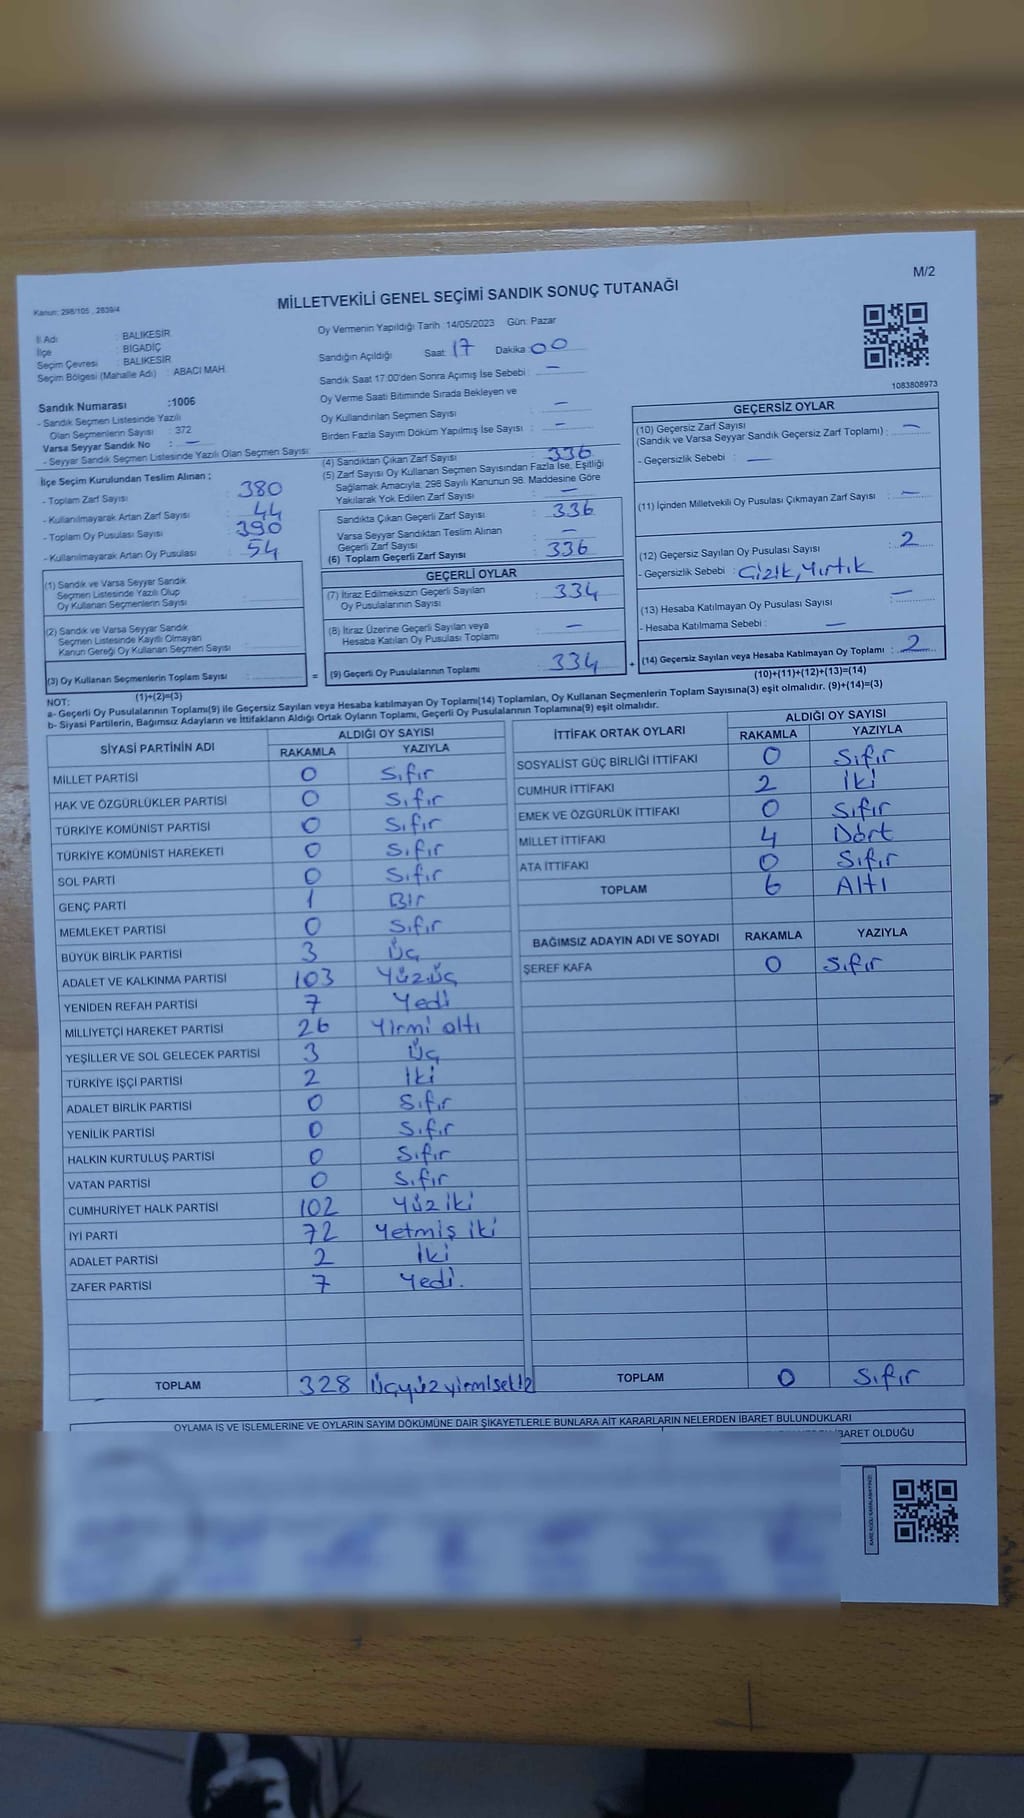 M/2
MİLLETVEKİLİ GENEL SEÇİMİ SANDIK SONUÇ TUTANAĞI
Kanun: 298/105 , 2839/4
İl Adı : BALIKESİR
İlçe : BİGADİÇ
Seçim Çevresi : BALIKESİR
Seçim Bölgesi (Mahalle Adı) : ABACI MAH.
Sandık Numarası :1006
- Sandık Seçmen Listesinde Yazılı
Olan Seçmenlerin Sayısı : 372
Varsa Seyyar Sandık No : —
- Seyyar Sandık Seçmen Listesinde Yazılı Olan Seçmen Sayısı:
Oy Vermenin Yapıldığı Tarih :14/05/2023 Gün: Pazar
Sandığın Açıldığı Saat 17 Dakika 00
Sandık Saat 17:00'den Sonra Açımış İse Sebebi : —
Oy Verme Saati Bitiminde Sırada Bekleyen ve
Oy Kullandırılan Seçmen Sayısı : —
Birden Fazla Sayım Döküm Yapılmış İse Sayısı : —
1083808973
İlçe Seçim Kurulundan Teslim Alınan ;
- Toplam Zarf Sayısı : 380
- Kullanılmayarak Artan Zarf Sayısı : 44
- Toplam Oy Pusulası Sayısı : 390
- Kullanılmayarak Artan Oy Pusulası : 54
(1) Sandık ve Varsa Seyyar Sandık
Seçmen Listesinde Yazılı Olup
Oy Kullanan Seçmenlerin Sayısı :
(2) Sandık ve Varsa Seyyar Sandık
Seçmen Listesinde Kayıtlı Olmayan
Kanun Gereği Oy Kullanan Seçmen Sayısı :
(3) Oy Kullanan Seçmenlerin Toplam Sayısı :
(1)+(2)=(3)
(4) Sandıktan Çıkan Zarf Sayısı : 336
(5) Zarf Sayısı Oy Kullanan Seçmen Sayısından Fazla İse, Eşitliği
Sağlamak Amacıyla; 298 Sayılı Kanunun 98. Maddesine Göre
Yakılarak Yok Edilen Zarf Sayısı : —
Sandıkta Çıkan Geçerli Zarf Sayısı : 336
Varsa Seyyar Sandıktan Teslim Alınan
Geçerli Zarf Sayısı : —
(6) Toplam Geçerli Zarf Sayısı : 336
GEÇERLİ OYLAR
(7) İtiraz Edilmeksizin Geçerli Sayılan
Oy Pusulalarının Sayısı : 334
(8) İtiraz Üzerine Geçerli Sayılan veya
Hesaba Katılan Oy Pusulası Toplamı : —
= (9) Geçerli Oy Pusulalarının Toplamı : 334 +
GEÇERSİZ OYLAR
(10) Geçersiz Zarf Sayısı
(Sandık ve Varsa Seyyar Sandık Geçersiz Zarf Toplamı) : —
- Geçersizlik Sebebi : —
(11) İçinden Milletvekili Oy Pusulası Çıkmayan Zarf Sayısı : —
(12) Geçersiz Sayılan Oy Pusulası Sayısı : 2
- Geçersizlik Sebebi : Çizik, Yırtık
(13) Hesaba Katılmayan Oy Pusulası Sayısı : —
- Hesaba Katılmama Sebebi : —
(14) Geçersiz Sayılan veya Hesaba Katılmayan Oy Toplamı : 2
(10)+(11)+(12)+(13)=(14)
NOT:
a- Geçerli Oy Pusulalarının Toplamı(9) ile Geçersiz Sayılan veya Hesaba katılmayan Oy Toplamı(14) Toplamları, Oy Kullanan Seçmenlerin Toplam Sayısına(3) eşit olmalıdır. (9)+(14)=(3)
b- Siyasi Partilerin, Bağımsız Adayların ve İttifakların Aldığı Ortak Oyların Toplamı, Geçerli Oy Pusulalarının Toplamına(9) eşit olmalıdır.
SİYASİ PARTİNİN ADI ALDIĞI OY SAYISI
RAKAMLA YAZIYLA
MİLLET PARTİSİ 0 Sıfır
HAK VE ÖZGÜRLÜKLER PARTİSİ 0 Sıfır
TÜRKİYE KOMÜNİST PARTİSİ 0 Sıfır
TÜRKİYE KOMÜNİST HAREKETİ 0 Sıfır
SOL PARTİ 0 Sıfır
GENÇ PARTİ 1 Bir
MEMLEKET PARTİSİ 0 Sıfır
BÜYÜK BİRLİK PARTİSİ 3 Üç
ADALET VE KALKINMA PARTİSİ 103 Yüzüç
YENİDEN REFAH PARTİSİ 7 Yedi
MİLLİYETÇİ HAREKET PARTİSİ 26 Yirmi altı
YEŞİLLER VE SOL GELECEK PARTİSİ 3 Üç
TÜRKİYE İŞÇİ PARTİSİ 2 İki
ADALET BİRLİK PARTİSİ 0 Sıfır
YENİLİK PARTİSİ 0 Sıfır
HALKIN KURTULUŞ PARTİSİ 0 Sıfır
VATAN PARTİSİ 0 Sıfır
CUMHURİYET HALK PARTİSİ 102 Yüz iki
İYİ PARTİ 72 Yetmiş iki
ADALET PARTİSİ 2 İki
ZAFER PARTİSİ 7 Yedi.
TOPLAM 328 Üçyüzyirmisekiz
İTTİFAK ORTAK OYLARI ALDIĞI OY SAYISI
RAKAMLA YAZIYLA
SOSYALİST GÜÇ BİRLİĞİ İTTİFAKI 0 Sıfır
CUMHUR İTTİFAKI 2 İki
EMEK VE ÖZGÜRLÜK İTTİFAKI 0 Sıfır
MİLLET İTTİFAKI 4 Dört
ATA İTTİFAKI 0 Sıfır
TOPLAM 6 Altı
BAĞIMSIZ ADAYIN ADI VE SOYADI RAKAMLA YAZIYLA
ŞEREF KAFA 0 Sıfır
TOPLAM 0 Sıfır
OYLAMA İŞ VE İŞLEMLERİNE VE OYLARIN SAYIM DÖKÜMÜNE DAİR ŞİKAYETLERLE BUNLARA AİT KARARLARIN NELERDEN İBARET BULUNDUKLARI
İBARET OLDUĞU